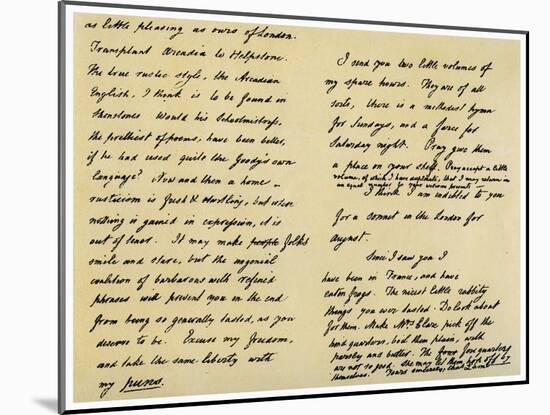 as little pleasing as ours of London.
Transplant Arcadia to Helpstone.
The true rustic style, the Arcadian
English, I think is to be found in
Shenstone. Would his Schoolmistress,
the prettiest of poems, have been better,
if he had used quite the Goody's own
language? Now and then a home
rusticism is fresh & startling, but where
nothing is gained in expression, it is
out of tenor. It may make people folks
smile and stare, but the ungenial
coalition of barbarous with refined
phrases will prevent you in the end
from being so generally tasted, as you
deserve to be. Excuse my freedom,
and take the same liberty with
my puns.
I send you two little volumes of
my spare hours. They are of all
sorts, there is a methodist hymn
for Sundays, and a farce for
Saturday night. Pray give them
a place on your shelf. Pray accept a little
volume, of which I have duplicate, that I may return in
an equal number to your welcome presents —
I think I am indebted to you
for a sonnet in the London for
August.
Since I saw you I
have been in France, and have
eaten frogs. The nicest little rabbity
things you ever tasted. Do look about
for them. Make Mrs Clare pick off the
hind quarters, boil them plain, with
parsley and butter. The four fore quarters
are not so good. She may let them hop off by
themselves. Yours sincerely,